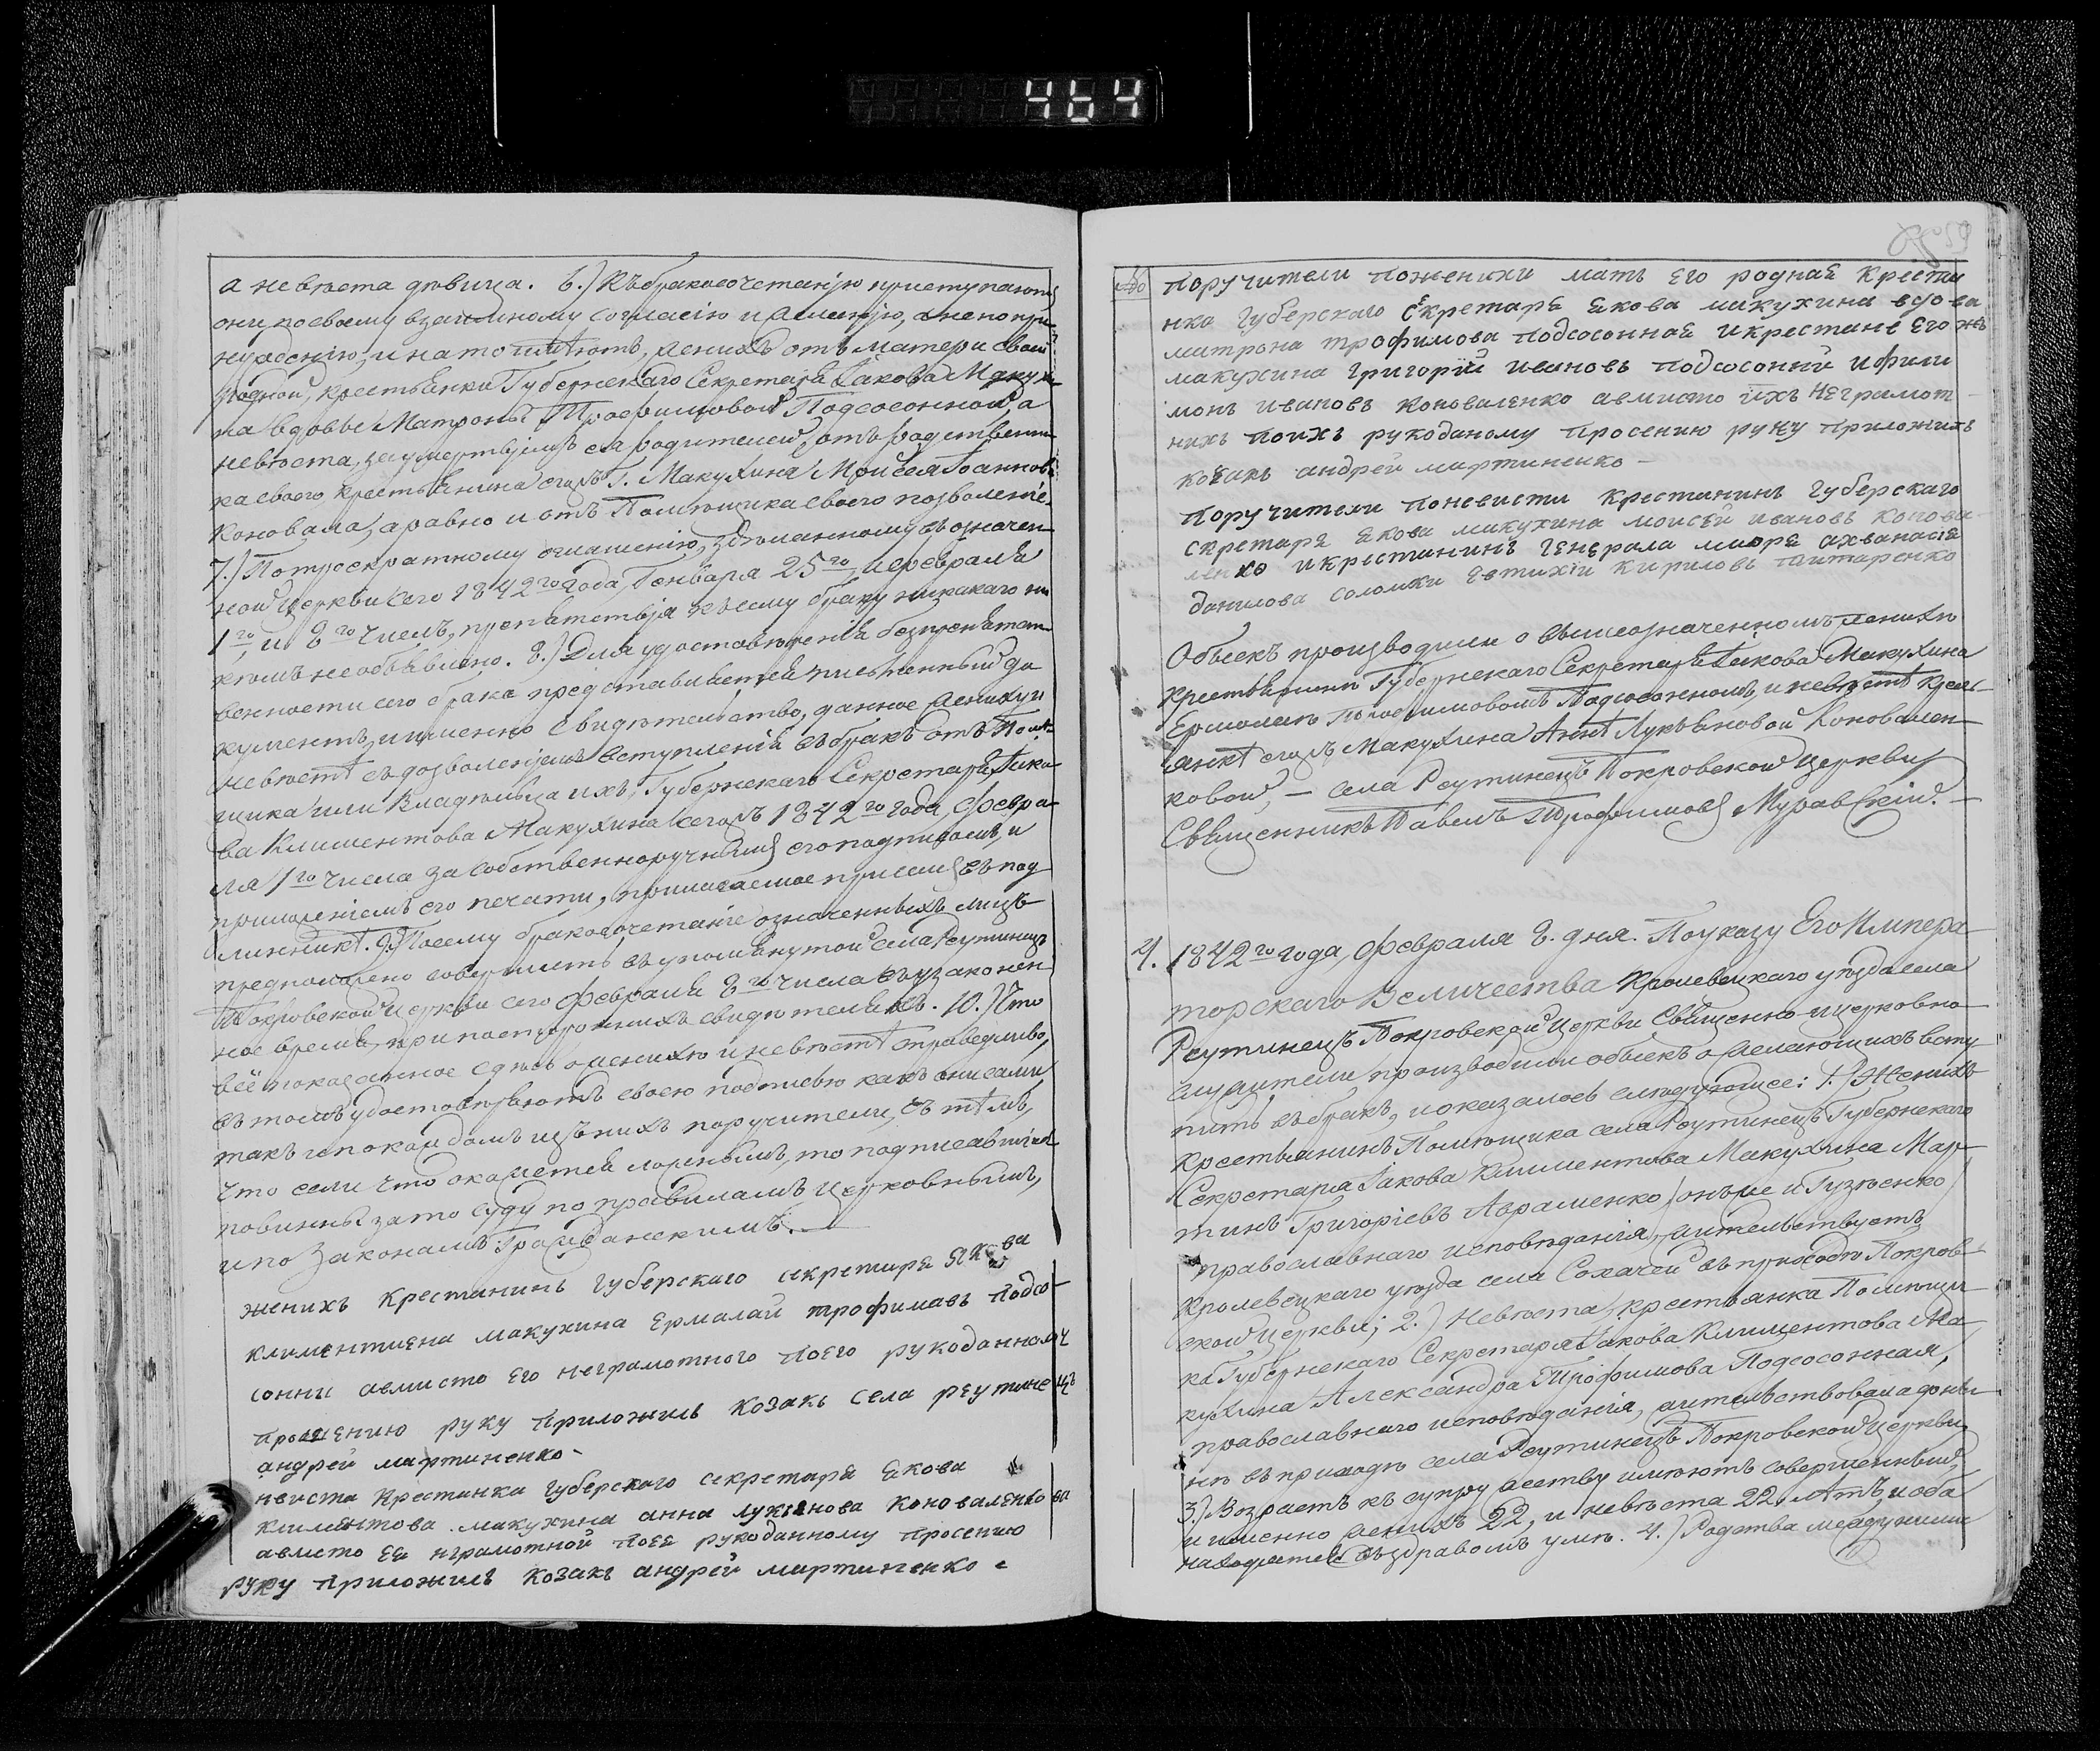 464
а невѣста дѣвица. 6.) Къ бракосочетанію приступаютъ
они по своему взаимному согласію и желанію, а не по при-
нужденію, и на то имѣютъ, женихъ отъ матери своей
родной, крестьянки Губернскаго Секретаря Іакова Макухи-
на вдовы Матроны Трофимовой Подсосонной, а
невѣста, за умертвіемъ ея родителей, отъ родственни-
ка своего крестьянина егожъ Г. Макухина Мойсея Іоаннова
Коновала, а равно и отъ Помѣщика своего позволеніе.
7.) По троекратному оглашенію, здѣланному въ означен-
ной церкви сего 1842го года, Генваря 25го, и февраля
1го и 2го чиселъ, препятствія къ сему браку никакаго ни
кѣмъ не объявлено. 8.) Для удостовѣренія безпрепятст-
венности сего брака представляется письменный до-
кументъ, и именно свидѣтельство, данное жениху и
невѣстѣ съ дозволеніемъ вступленія въ бракъ отъ Помѣ-
щика или Владѣльца ихъ, Губернскаго Секретаря Іако-
ва Климентова Макухина сегожъ 1842го года, Февра-
ля 1го числа за собственноручнымъ его подписомъ, и
приложеніемъ его печати, прилагаемое при семъ въ под-
линникѣ. 9.) Посему бракосочетаніе означенныхъ лицъ
предположено совершить въ упомянутой села Реутинецъ
Покровской церкви сего Февраля 8го числа въ узаконен-
ное время, при постороннихъ свидѣтеляхъ. 10.) Что
всё показанное здѣсь о женихѣ и невѣстѣ справедливо,
въ томъ удостовѣряютъ своею подписью какъ они сами
такъ и по каждомъ изъ нихъ поручители, съ тѣмъ,
что если что окажется ложнымъ, то подписавшіеся
повинны за то суду по правиламъ церковнымъ,
и по законамъ Гражданскимъ.
женихъ крестининъ губерскаго секретаря якова
климентиена макухина Ермалай трофимавъ подсо-
сонни авмисто его неграмотного поего рукоданному
прошению руку приложилъ козакъ села реутинецъ
андрей мартиненко-
невиста крестинка губерского секретаря якова
климентова макухина анна лукянова коноваленкова
авмисто ея играмотной поее рукоданному просению
руку приложилъ козакъ андрей мартиненко
59
поручители поженихи мать его родная крести
нка губерскаго секретаря якова макухина вдова
митрона трофимова подсосонная икрестяне его же
макухина григорий ивановъ подсосонни ифили
монъ ивановъ коноваленко авмисто ихъ неграмот
нихъ поихъ рукоданому просению руку приложилъ
козакъ андрей мартиненко-
поручители поневисти крестининъ губерскаго
скретаря якова макухина моисей ивановъ конова
ленко икрестининъ генерала миора ахванасия
данилова соломки Евтихий кириловъ титаренко
Обыскъ производили о вышеозначенномъ женихѣ
крестьянинѣ Губернскаго Секретаря Іакова Макухина
Ермолаѣ Трофимовомъ Подсосонномъ, и невѣстѣ кресть-
янкѣ егожъ Макухина Аннѣ Лукьяновой Коновален-
ковой, — села Реутинецъ Покровской Церкви
Священникъ Павелъ Трофимовъ Муравскій. —
4. 1842го года, Февраля 8. дня. По указу Его Импера-
торскаго Величества Кролевецкаго уѣзда села
Реутинецъ Покровской Церкви Священно-и церковно-
служители производили обыскъ о желающихъ всту-
пить въ бракъ, и оказалось слѣдующее: 1.) Женихъ
крестьянинъ Помѣщика села Реутинецъ Губернскаго
Секретаря Іакова Климентова Макухина Мар-
тинъ Григоріевъ Авраменко / онъ же и Гузѣенко /
православнаго исповѣданія, жительствуетъ
Кролевецкаго уѣзда села Сохачей въ приходѣ Покров-
ской церкви; 2.) Невѣста, крестьянка Помѣщи-
ка Губернскаго Секретаря Іакова Климентова Ма-
кухина Александра Трофимова Подсосонная,
православнаго исповѣданія, жительствовала донын-
нѣ въ приходѣ села Реутинецъ Покровской Церкви.
3.) Возрастъ къ супружеству имѣютъ совершенный,
и именно женихъ 22, и невѣста 22. лѣтъ, и оба
находятся въ здравомъ умѣ. 4.) Родства между ними